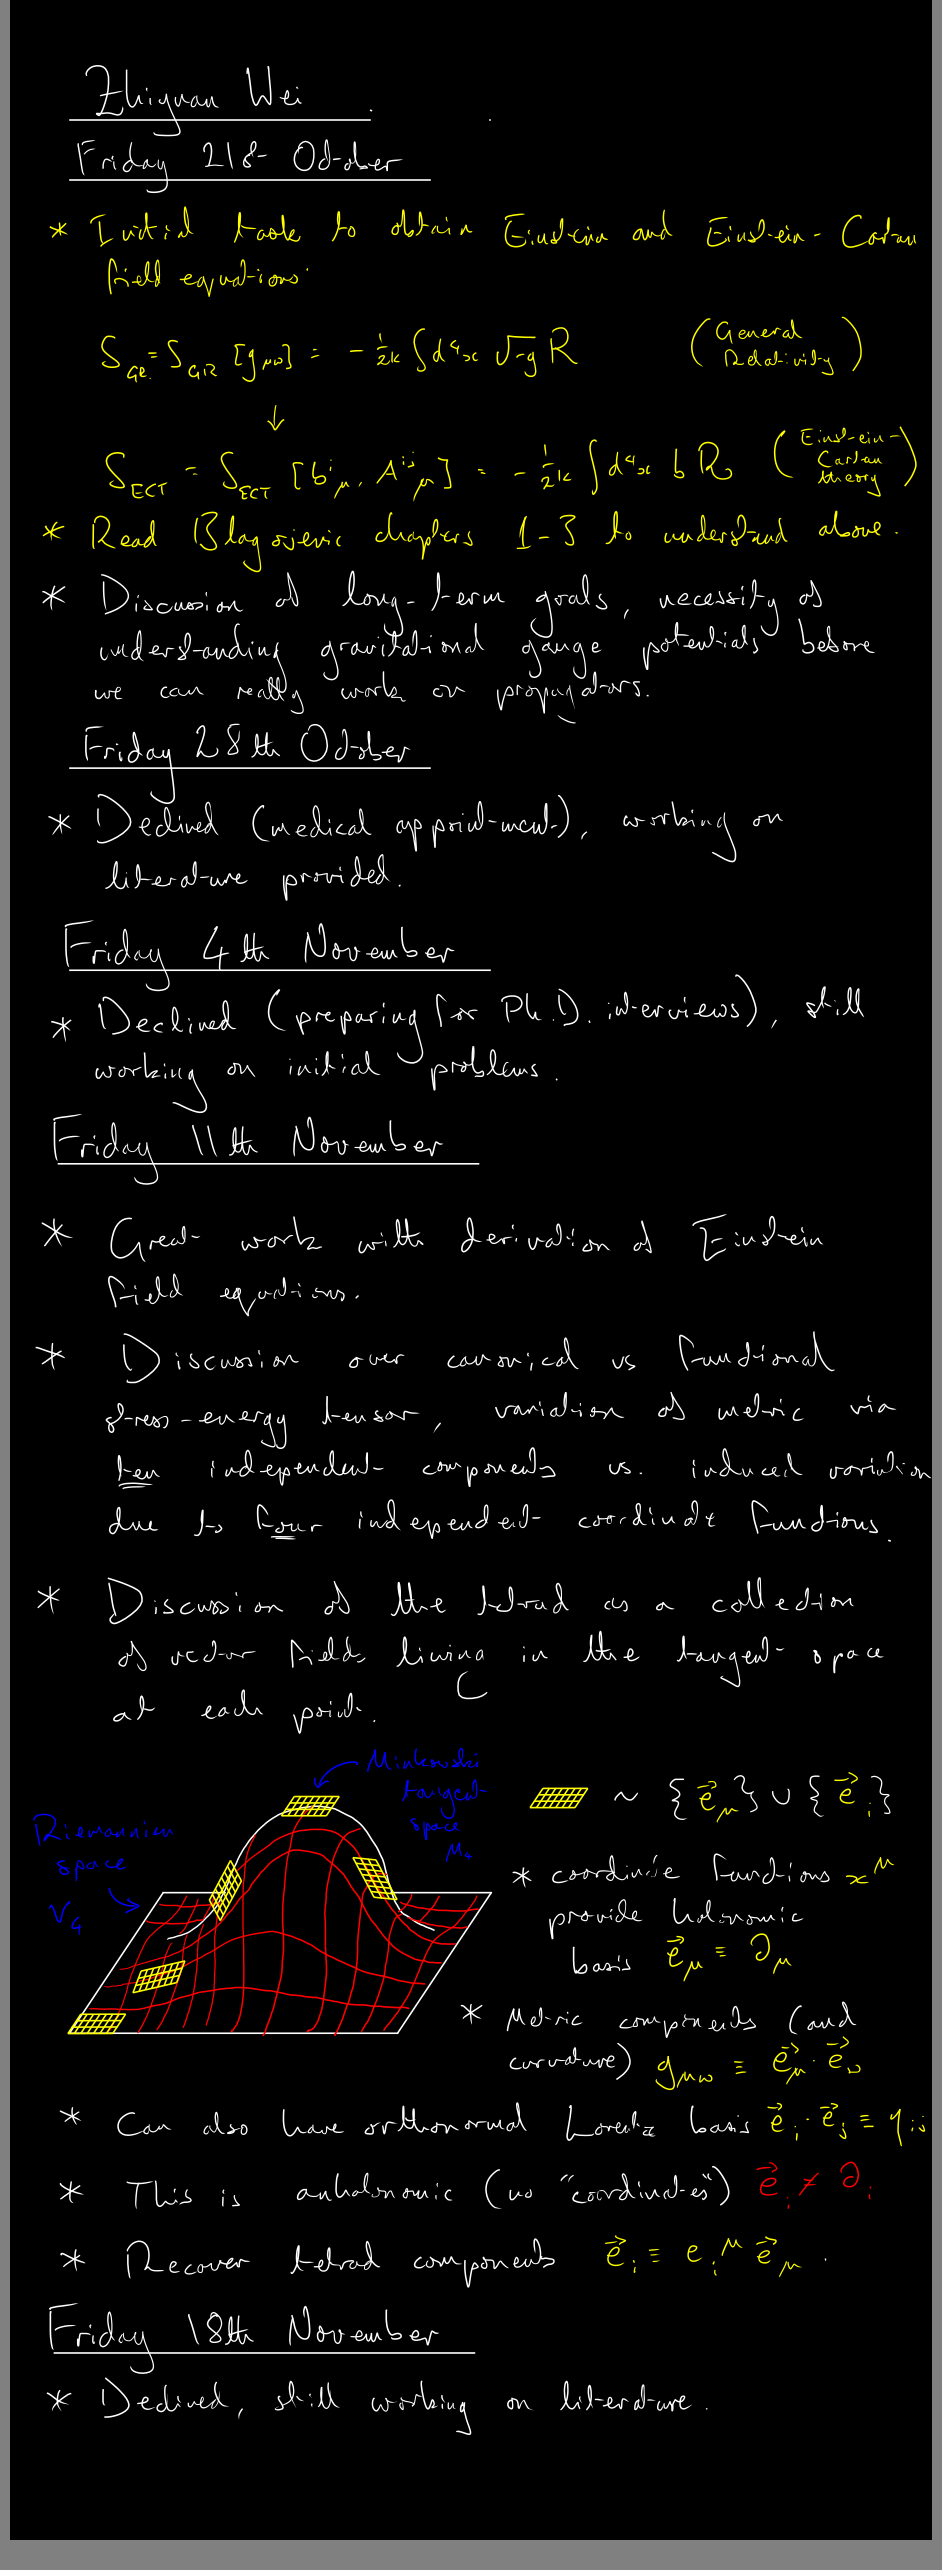 Zhiyuan Wei
Friday 21st October
* Initial task to obtain Einstein and Einstein-Cartan
field equations:
S_GR = S_GR [g_μν] = - 1/2κ ∫d⁴x √-g R (General Relativity)
↓
S_ECT = S_ECT [b^i_μ, A^ij_μ] = - 1/2κ ∫d⁴x b R (Einstein-Cartan theory)
* Read Blagojevic chapters 1-3 to understand above.
* Discussion of long-term goals, necessity of
understanding gravitational gauge potentials before
we can really work on propagators.
Friday 28th October
* Declined (medical appointment), working on
literature provided.
Friday 4th November
* Declined (preparing for Ph.D. interviews), still
working on initial problems.
Friday 11th November
* Great work with derivation of Einstein
field equations.
* Discussion over canonical vs functional
stress-energy tensor, variation of metric via
ten independent components vs. induced variation
due to four independent coordinate functions.
* Discussion of the tetrad as a collection
of vector fields living in the tangent space
at each point.
Minkowski
tangent
space
M₄
Riemannian
space
V₄
~ {e⃗_μ} ∪ {e⃗_i}
* coordinate functions x^μ
provide holonomic
basis e⃗_μ ≡ ∂_μ
* Metric components (and
curvature) g_μν ≡ e⃗_μ · e⃗_ν
* Can also have orthonormal Lorentz basis e⃗_i · e⃗_j ≡ η_ij
* This is anholonomic (no "coordinates") e⃗_i ≠ ∂_i
* Recover tetrad components e⃗_i ≡ e_i^μ e⃗_μ .
Friday 18th November
* Declined, still working on literature.